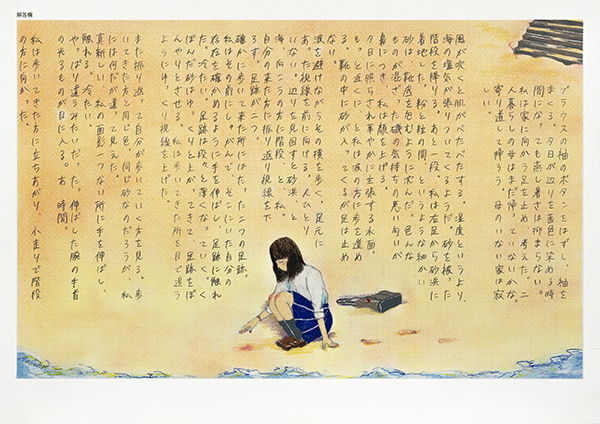 解答欄
ブラウスの袖のボタンをはずし、袖を
まくる。夕日が辺りを茜色に染める時
間になっても蒸し暑さは抑まらない。
私は家に向かう足を止め、考えた。二
人暮らしの母はまだ帰っていないかな。
寄り道して帰ろう。母のいない家は寂
しい。
風が吹くと肌がべたべたする。湿度というより、
海の塩気が張りついてくるようだ。砂を被った
階段を降り、あと一段。私は右足から砂浜に
着地した。粉と粒の間、というような細かい
砂に、靴底を包むように沈んだ。色んな
ものが混ざった磯の気持ちの悪い匂いが
鼻につき、私は顔を上げる。
夕日に照らされ華やかに主張する水面。
もっと近くに、と私は波の方に歩を進め
る。靴の中に砂が入ってくるが足は止め
ない。
波を避けながらその横を歩く。足元に
あった視線を前に向ける。人ひとり
いない。辺りを見回すと砂浜と
海、向こうの方に階段、と私。
自分の来た方の振り返り視線を下
ろす。足跡が二つ。
確かに歩いて来た所には、たった二つの足跡。
私はその前にしゃがんで、そこにいた自分の
存在を確かめるように手を伸ばし、足跡に触れ
た。冷たい。足跡は段々と薄くなっていく。く
ぼんだ砂はゆっくりと上がってきて、足跡をぼ
んやりとさせる。私は歩いてきた所を目で追う
ようにゆっくり視線を上げた。
また振り返って自分が歩いていく方を見る。歩
いてきた方と同じ色、同じ砂なのだろうが、私
には何だか違って見えた。
真新しい、私の面影一つない所に手を伸ばし、
触れる。冷たい。
やっぱり違うみたいだった。伸ばした腕の手首
の光るものが目に入る。あ、時間。
私は歩いてきた方に立ちあがり、小走りで階段
の方に向かった。